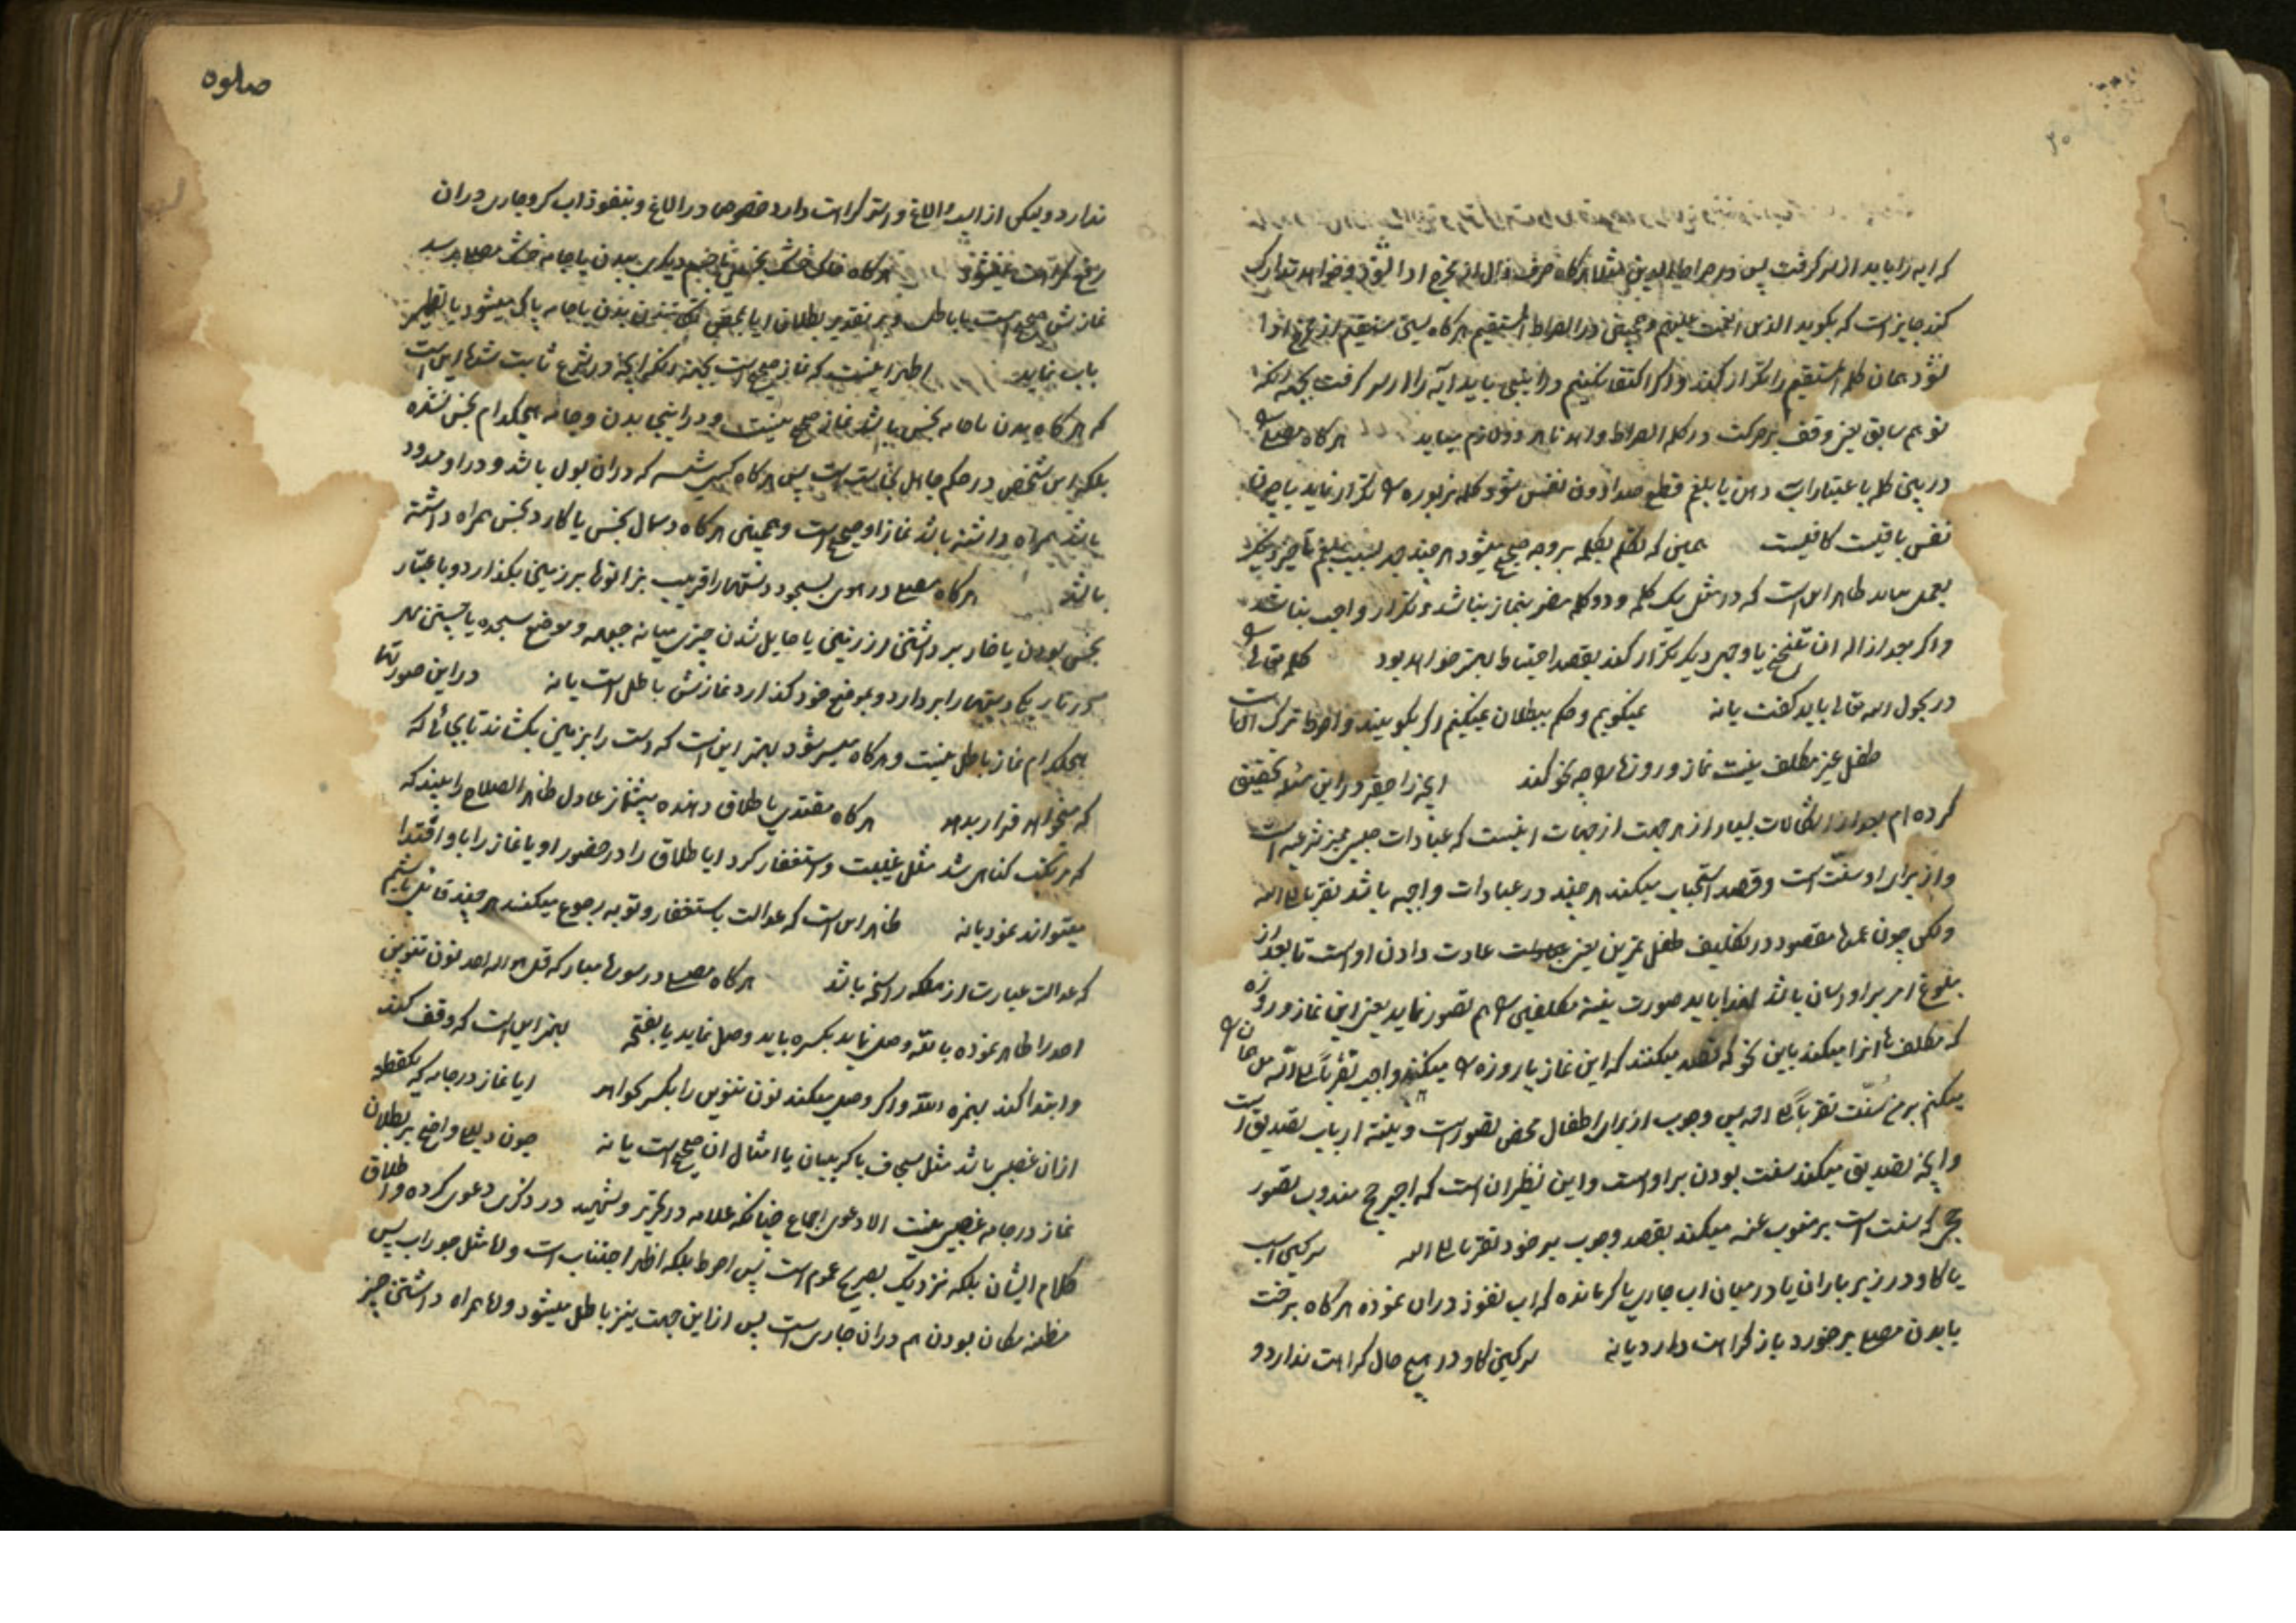 که ایه را باید از سر گرفت پس در صراط الذین مثلا هرگاه حرف ذال از مخرج ادا نشود و خواهد تدارک
کند جایز است که بگوید الذین انعمت علیهم و همچنین در الصراط المستقیم هرگاه سین مستقیم از مخرج ادا
نشود همان کلمه المستقیم را تکرار کند و اگر اکتفا نکنیم در اینجا باید ایه را از سر گرفت بجهة انکه
توهم سابق یعنی وقف بر حرکت در کلمه الصراط و اهدنا هر دو لازم میاید هرگاه مصلی
در بین کلمه باعتبار اب دهن یا بلغم قطع صدا دون نفس شود کلمه مزبوره را تکرار نماید یا چون
نفس باقیست کافیست همین که تکلم بکلمه بر وجه صحیح میشود هر چند مد بسبب بلغم تاخیر دیگر
بعمل میاید ظاهر این است که در مثل یک کلمه و دو کلمه مضر بنماز نباشد و تکرار واجب نباشد
و اگر بعد از اله ان تنخع یا وجهی دیگر تکرار کند بقصد احتیاط بهتر خواهد بود کلمه تعالی را
در بحول الله تعالی باید گفت یا نه نمیگویم و حکم ببطلان نمیکنیم اگر بگویند و احوط ترک انها است
طفل غیر مکلف نیت نماز و روزه را چه نحو کند انچه را حقیر در این مسئله تحقیق
کرده ام بعد از اشکالات بسیار از هر جهت از جهات اینست که عبادات صبی ممیز شرعیه است
و از برای او سنت است و قصد استحباب میکند هر چند در عبادات واجبه باشد تقربا الی الله
ولکن چون عمده مقصود در تکلیف طفل تمرین یعنی عبادت عادت دادن او است تا بعد از
بلوغ امر بر او اسان باشد لهذا باید صورت نیت مکلفین را هم تصور نماید یعنی این نماز و روزه
که مکلف ها انرا میکنند باین نحو که قصد میکنند که این نماز یا روزه را میکنند واجب تقربا الی الله من همان را
میکنم بر من سنت تقربا الی الله پس وجوب از برای اطفال محض تصور است و نیت از باب تصدیق است
و انچه تصدیق میکند سنت بودن بر او است و این نظیر ان است که اجیر حج مندوب تصور
حج که سنت است بر منوب عنه میکند بقصد وجوب بر خود تقربا الی الله سرکین اسب
یا کاو در زیر باران یا در میان اب جاری یا کر مانده که اب نفوذ در ان نموده هرگاه برخت
یا بدن مصلی بر خورد باز کراهت دارد یا نه سرکین کاو در هیچ حال کراهت ندارد و
صلوة
ندارد و لیکن از اسب و الاغ و استر کراهت دارد خصوص در الاغ و بنفوذ اب کر و جاری در ان
رفع کراهت نمیشود هرگاه خاک خشک نجس یا چیز دیگری ببدن یا جامه خشک مصلی برسد
نمازش صحیح است یا باطل و بر تقدیر بطلان ایا بمحض تکانیدن بدن یا جامه پاک میشود یا تطهیر
باب نماید اظهر اینست که نماز صحیح است بجهة انکه انچه در شرع ثابت شده این است
که هرگاه بدن یا جامه نجس باشد نماز صحیح نیست و در اینجا بدن و جامه هیچکدام نجس نشده
بلکه این شخص در حکم حامل نجاست است پس هرگاه کسی شیشه که در ان بول باشد و در او مسدود
باشد همراه داشته باشد نماز او صحیح است و همچنین هرگاه دسمال نجس یا کارد نجس همراه داشته
باشد هرگاه مصلی در هوی بسجود دستها را قریب بزانوها بر زمین بگذارد و باعتبار
نجس بودن یا خار برداشتن از زمین یا حایل شدن چیزی میانه جبهه و موضع سجده یا جستن مهر
در تاریکی دستها را بردارد و بموضع خود گذارد نمازش باطل است یا نه در این صورتها
هیچکدام نماز باطل نیست و هرگاه میسر شود بهتر این است که دست را بر زمین بکشاند تا بجائی که
که میخواهد قرار بدهد هرگاه مقتدی یا طلاق دهنده پیشنماز عادل ظاهر الصلاح را ببیند که
که مرتکب گناهی شد مثل غیبت و استغفار کرد ایا طلاق را در حضور او یا نماز را با و اقتدا
میتواند نمود یا نه ظاهر این است که عدالت باستغفار و توبه رجوع میکند هر چند قائل باشیم
که عدالت عبارت از ملکه راسخه باشد هرگاه مصلی در سوره مبارکه قل هو الله احد نون تنوین
احد را ظاهر نموده با الله وصل نماید بکسره باید وصل نماید یا بفتحه بهتر این است که وقف کند
و ابتدا کند بهمزه الله و اگر وصل میکند نون تنوین را بکسر بخواند ایا نماز در جامه که یکقطعه
از ان غصبی باشد مثل سجاف یا کریبان یا امثال ان صحیح است یا نه چون دلیل واضح بر بطلان
نماز در جامه غصبی نیست الا دعوی اجماع چنانکه علامه در تحریر و شهید در ذکری دعوی کرده و اطلاق
کلام ایشان بلکه نزدیک بصریح عموم است پس احوط بلکه اظهر اجتناب است و اما مثل جوراب پس
مظنه مکان بودن هم در ان جاری است پس از این جهت نیز باطل میشود و اما همراه داشتن چیز